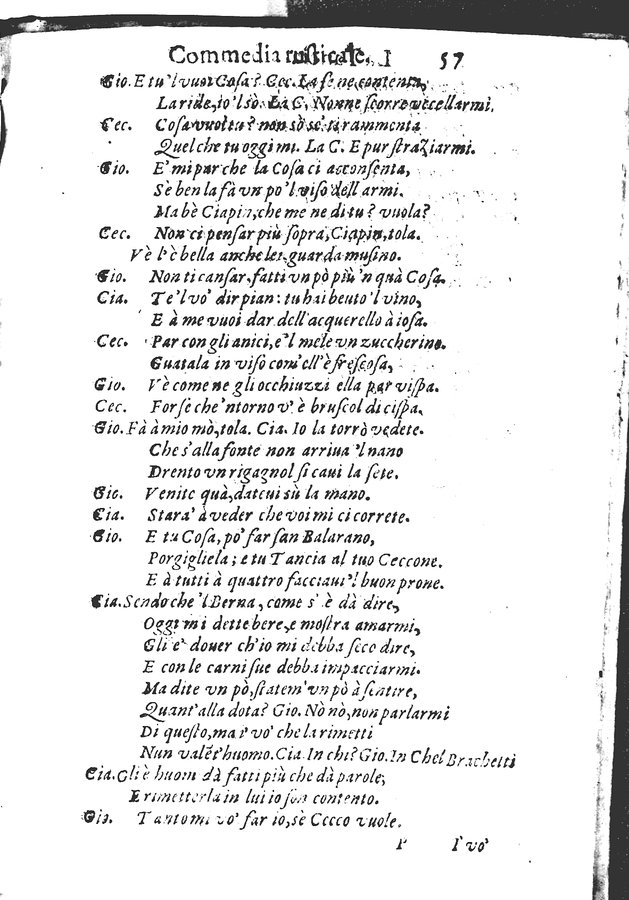 Commedia rusticale. I 57
Gio. E tu 'l vuoi Cosa? Cec. La se ne contenta,
La ride, io 'l sò. La C. Non ne scorre vecellarmi.
Cec. Cosa vuoltu? non sò se ti rammenta
Quel che tu oggi mi. La C. E pur straziarmi.
Gio. E' mi par che la Cosa ci acconsenta,
Sè ben la fà vn po' l viso dell armi.
Ma bè Ciapin, che me ne di tu? vuola?
Cec. Non ci pensar più sopra, Ciapin, tola.
Vè l' è bella anche lei, guarda musino.
Gio. Non ti cansar, fatti vn pò più 'n quà Cosa.
Cia. Te 'l vo' dir pian: tu hai beuto 'l vino,
E à me vuoi dar dell'acquerello à iosa.
Cec. Par con gli anici, e 'l mele vn zuccherino.
Guatala in viso com' ell' è frescosa,
Gio. Vè come ne gli occhiuzzi ella par vispa.
Cec. Forse che 'ntorno v' è bruscol di cispa,
Gio. Fà à mio mò, tola. Cia. Io la torrò vedete.
Che s'alla fonte non arriua 'l nano
Drento vn rigagnol si caui la sete.
Gio. Venite quà, datcui sù la mano.
Cia. Stara' à veder che voi mi ci correte.
Gio. E tu Cosa, po' far san Balarano,
Porgigliela; e tu Tancia al tuo Ceccone.
E à tutti à quattro facciaui 'l buon prone.
Cia. Sendo che 'l Berna, come s' è dà dire,
Oggi mi dette bere, e mostra amarmi,
Gli e' douer ch'io mi debba seco dire,
E con le carni sue debba impacciarmi.
Ma dite vn pò, statem' vn pò à sentire,
Quant' alla dota? Gio. Nò nò, non parlarmi
Di questo, ma i' vo' che la rimetti
Nun valēt'huomo. Cia. In chi? Gio. In Chel Brachetti
Cia. Gli è huom dà fatti più che dà parole,
E rimetterla in lui io son contento.
Gio. Tanto mi vo' far io, sè Cecco vuole.
P I' vo'